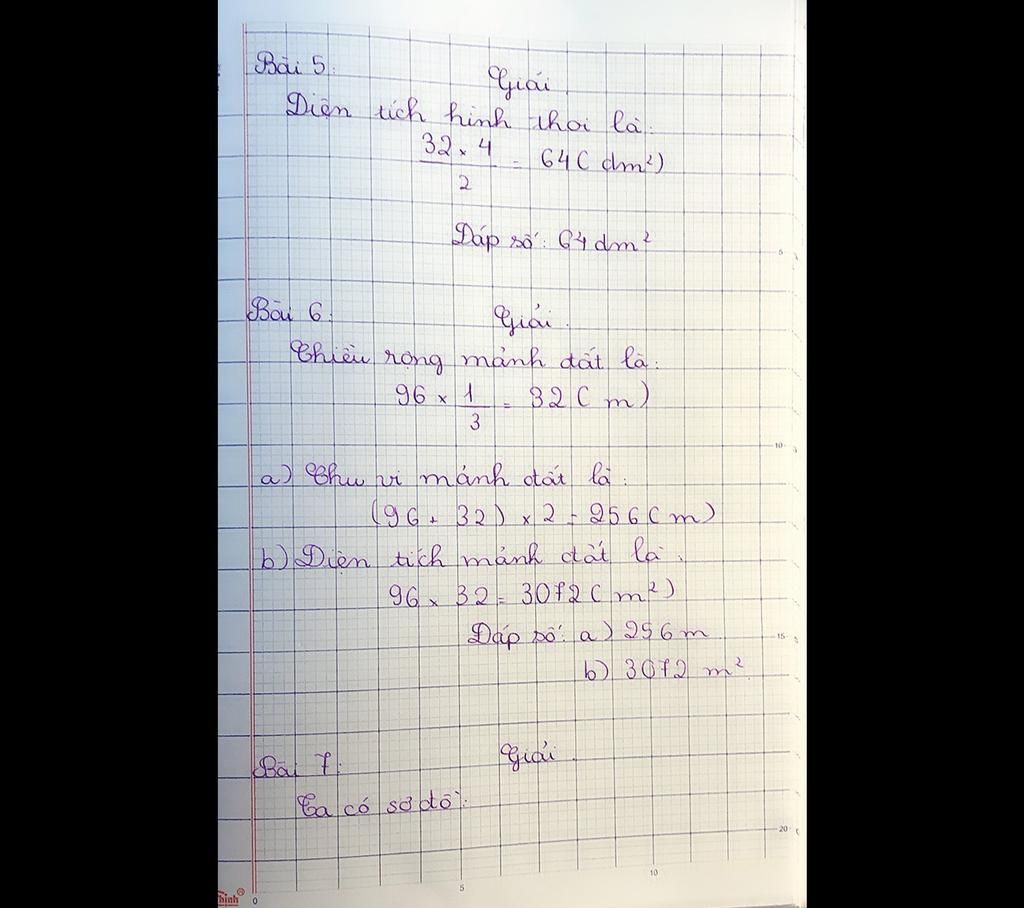 Bài 5:
Giải.
Diện tích hình thoi là:
32 × 4 / 2 = 64 ( dm²)
Đáp số: 64 dm²
Bài 6:
Giải.
Chiều rộng mảnh đất là:
96 × 1/3 = 32 ( m)
a) Chu vi mảnh đất là:
(96 + 32) × 2 = 256 ( m)
b) Diện tích mảnh đất là:
96 × 32 = 3072 ( m²)
Đáp số: a) 256 m
b) 3072 m²
Bài 7:
Giải.
Ta có sơ đồ:
5
10
15
20
0 5 10